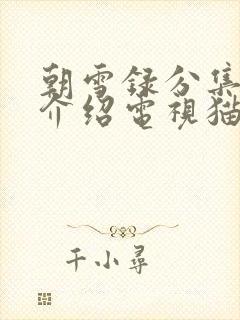 朝雪録分集
介绍電視猫
千小尋